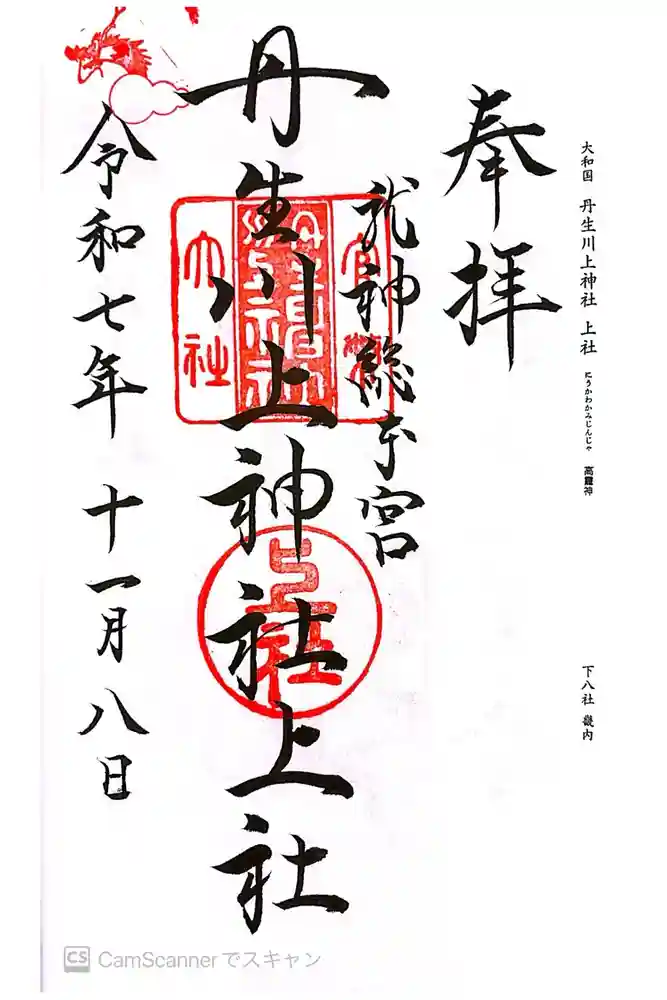 大和国 丹生川上神社 上社 にうかわかみじんじゃ 高龗神
下八社 畿内
奉拝
龍神総本宮
丹生川上神社上社
令和七年 十一月 八日
官幣
大社
上社
CS CamScannerでスキャン